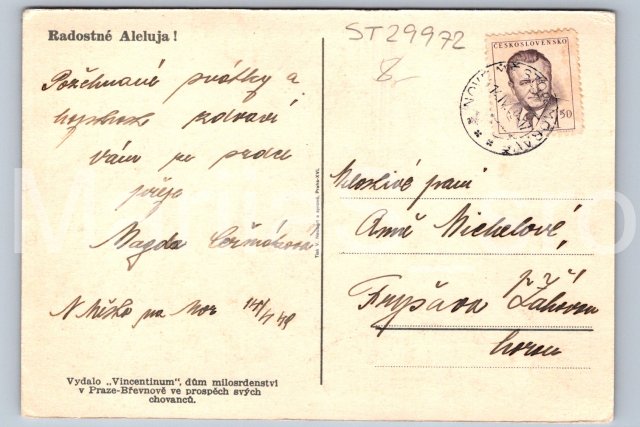 Radostné Aleluja!
ST29972
8,-
ČESKOSLOVENSKO
50
Požehnané svátky a
zdraví
vám ze srdce
přeje
Magda Čermáková
N Město na Mor 14/4 48
Vydalo „Vincentinum", dům milosrdenství
v Praze-Břevnově ve prospěch svých
chovanců.
Milostivé paní
Anně Michelové,
Fryšava p. Žákovou
horou